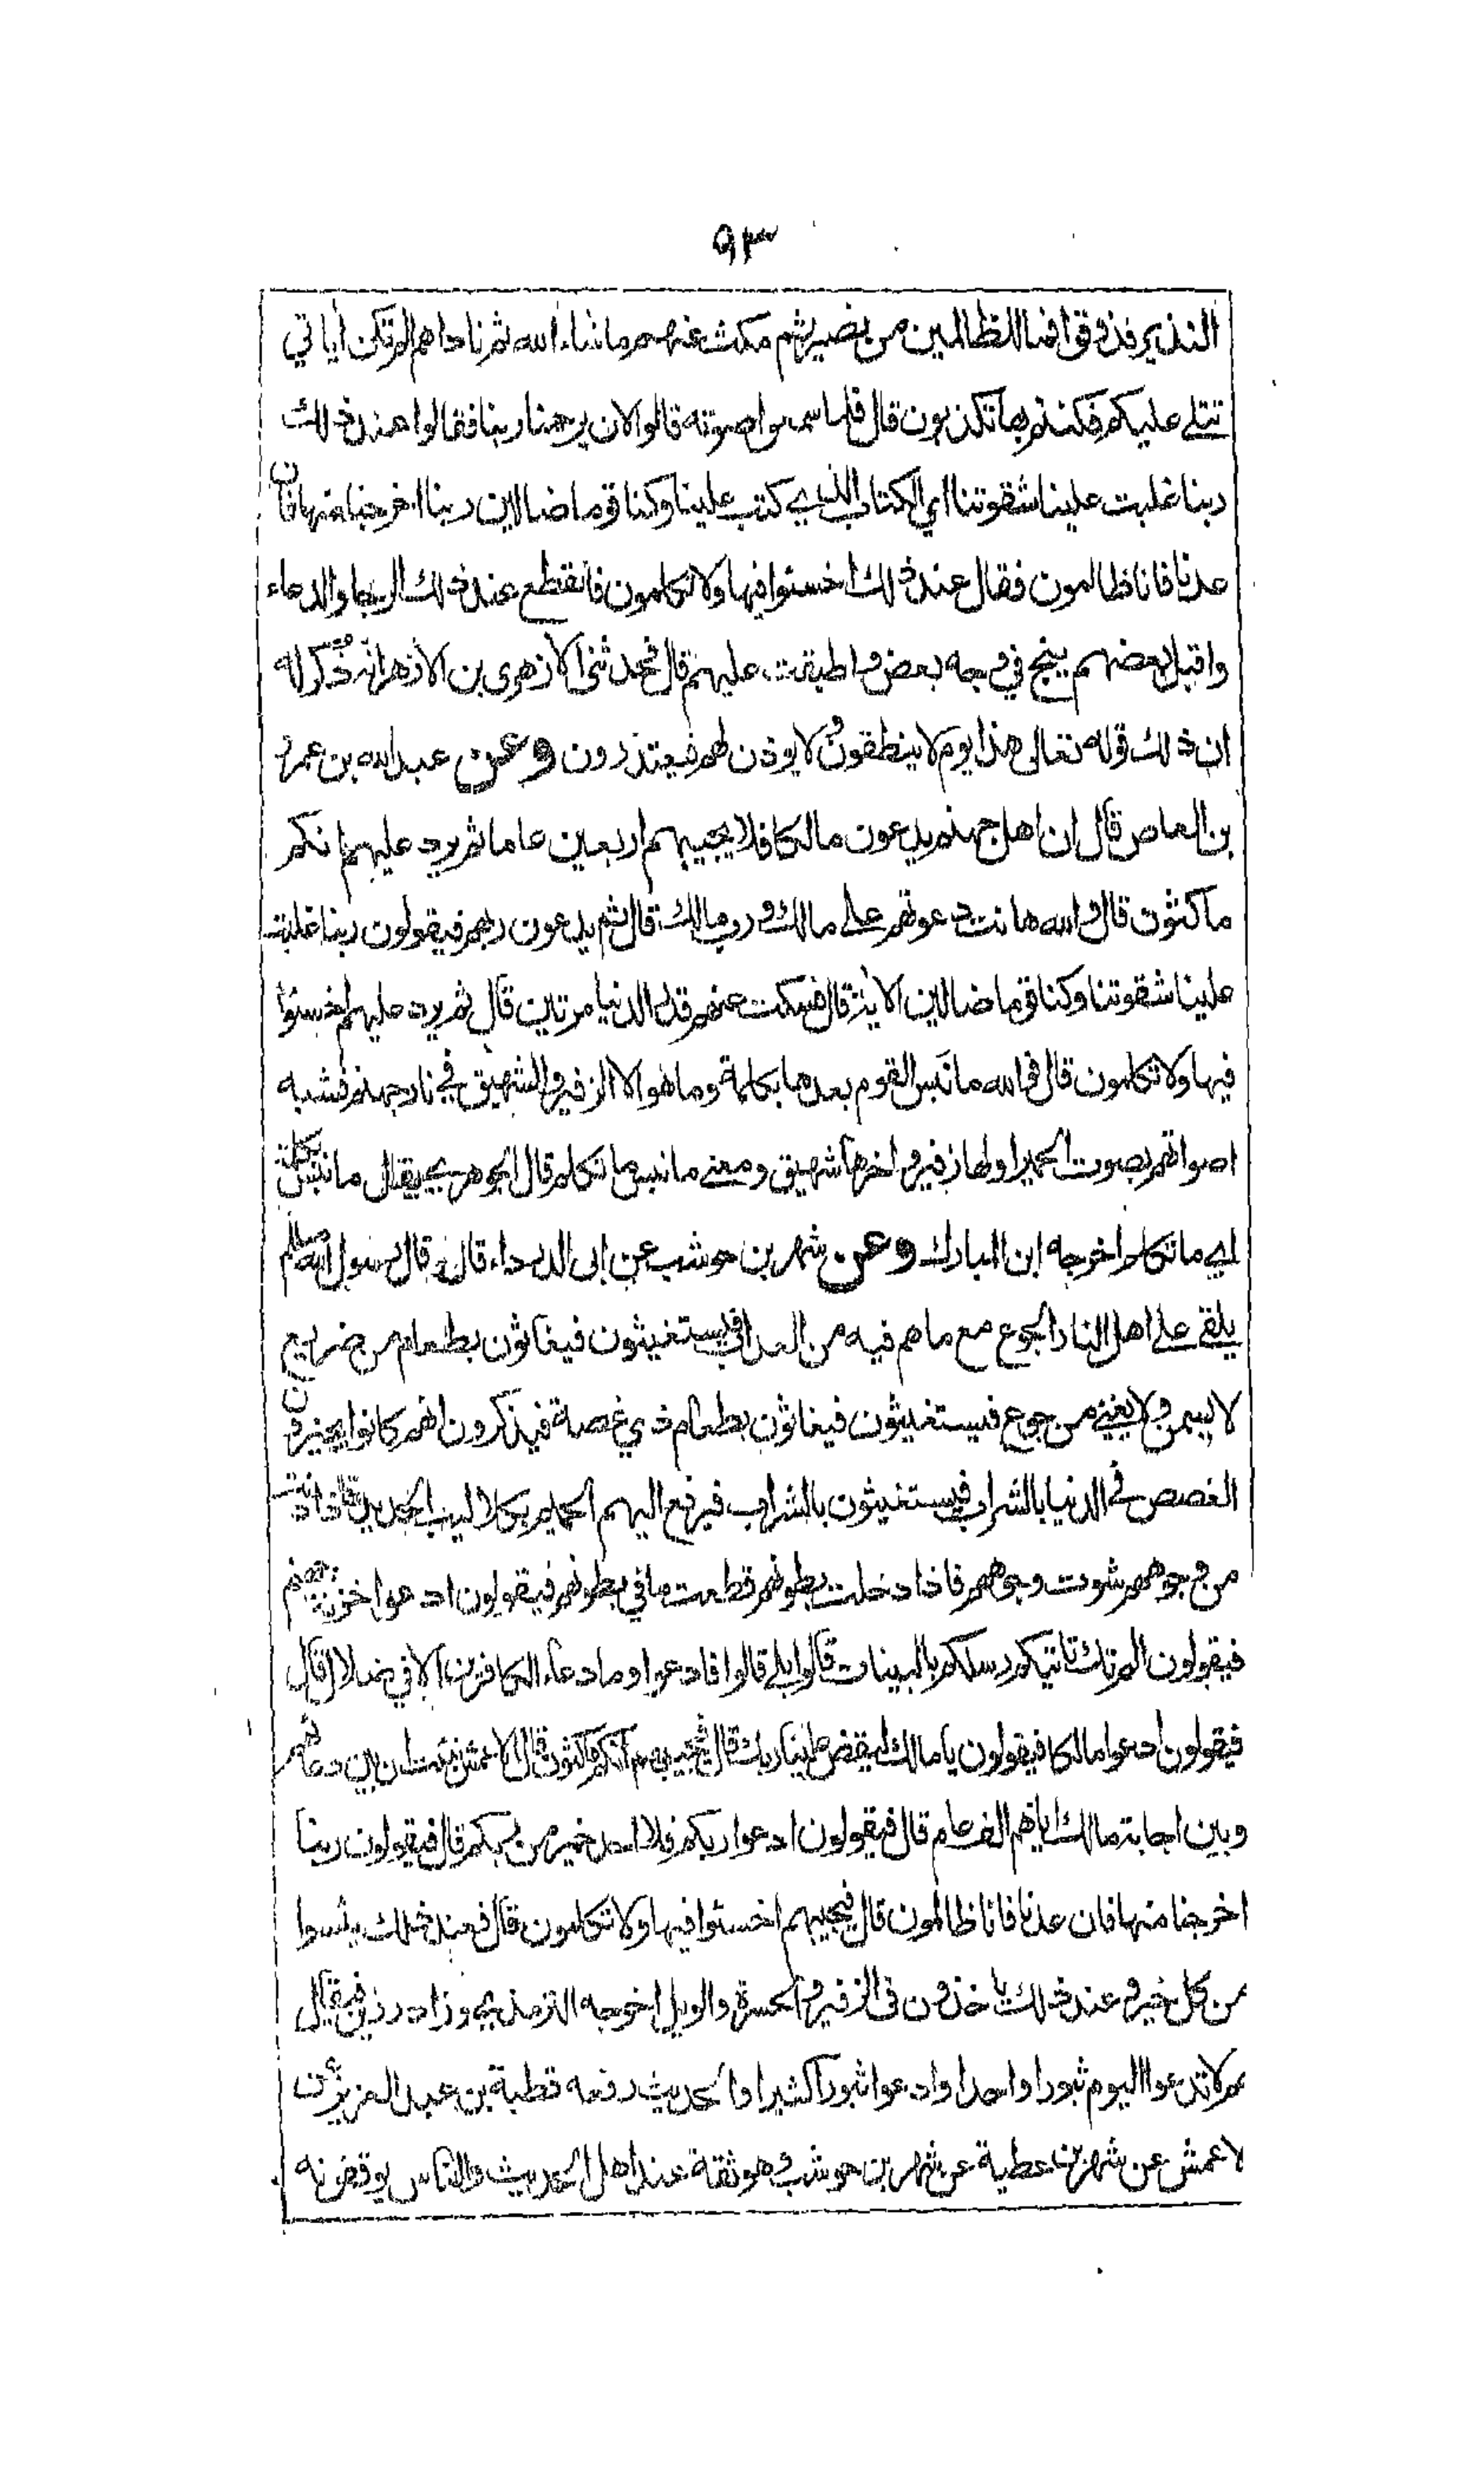 ٩٣
النذير فذوقوا فما للظالمين من نصير ثم مكث عنهم ما شاء الله ثم ناداهم الم تكن اياتي
تتلے عليكم فكنتم بها تكذبون قال فلما سمعوا صوته قالوا الان يرحمنا ربنا فقالوا عند ذلك
ربنا غلبت علينا شقوتنا اي الكتاب الذي كتب علينا وكنا قوما ضالين ربنا اخرجنا منها فان
عدنا فانا ظالمون فقال عند ذلك اخسئوا فيها ولا تكلمون فانقطع عند ذلك الرجا والدعاء
واقبل بعضهم ينبح في وجه بعض واطبقت عليهم قال فحدثني الازهري بن الازهر انه ذكر له
ان ذلك قوله تعالى هذا يوم لا ينطقون ولا يوذن لهم فيعتذرون وعن عبد الله بن عمرو
بن العاص قال ان اهل جهنم يدعون مالكا فلا يجيبهم اربعين عاما ثم يرد عليهم انكم
ماكثون قال والله هانت دعوتهم علے مالك ورب مالك قال ثم يدعون ربهم فيقولون ربنا غلبت
علينا شقوتنا وكنا قوما ضالين الاية قال فسكت عنهم قدر الدنيا مرتين قال ثم يرد عليهم اخسئوا
فيها ولا تكلمون قال فوالله ما نبس القوم بعدها بكلمة وما هو الا الزفير والشهيق في نار جهنم فشبه
اصواتهم بصوت الحمير اولها زفير واخرها شهيق ومعنے ما نبس ما تكلم قال الجوهري يقال ما نبس بكلمة
اي ما تكلم اخرجه ابن المبارك وعن شهر بن حوشب عن ابى الدرداء قال قال رسول الله صلعم
يلقے علے اهل النار الجوع مع ما هم فيه من العذاب فيستغيثون فيغاثون بطعام من ضريع
لا يسمن ولا يغنے من جوع فيستغيثون فيغاثون بطعام ذي غصة فيذكرون انهم كانوا يجيزون
الغصص في الدنيا بالشراب فيستغيثون بالشراب فيرفع اليهم الحميم بكلاليب الحديد فاذا دنت
من وجوههم شوت وجوههم فاذا دخلت بطونهم قطعت ما في بطونهم فيقولون ادعوا خزنة جهنم
فيقولون الم تك تاتيكم رسلكم بالبينات قالوا بلے قالوا فادعوا وما دعاء الكافرين الا في ضلال قال
فيقولون ادعوا مالكا فيقولون يا مالك ليقض علينا ربك قال فيجيبهم انكم ماكثون قال الاعمش نبئت ان بين دعائهم
وبين اجابة مالك اياهم الف عام قال فيقولون ادعوا ربكم فلا احد خير من ربكم قال فيقولون ربنا
اخرجنا منها فان عدنا فانا ظالمون قال فيجيبهم اخسئوا فيها ولا تكلمون قال فعند ذلك يئسوا
من كل خير وعند ذلك ياخذون فى الزفير والحسرة والويل اخرجه الترمذي وزاد رزين فيقال
لهم لا تدعوا اليوم ثبورا واحدا وادعوا ثبورا كثيرا والحديث رفعه قطبة بن عبد العزيز عن
لاعمش عن شهر بن عطية عن شهر بن حوشب وهو ثقة عند اهل الحديث والناس يوقفونه